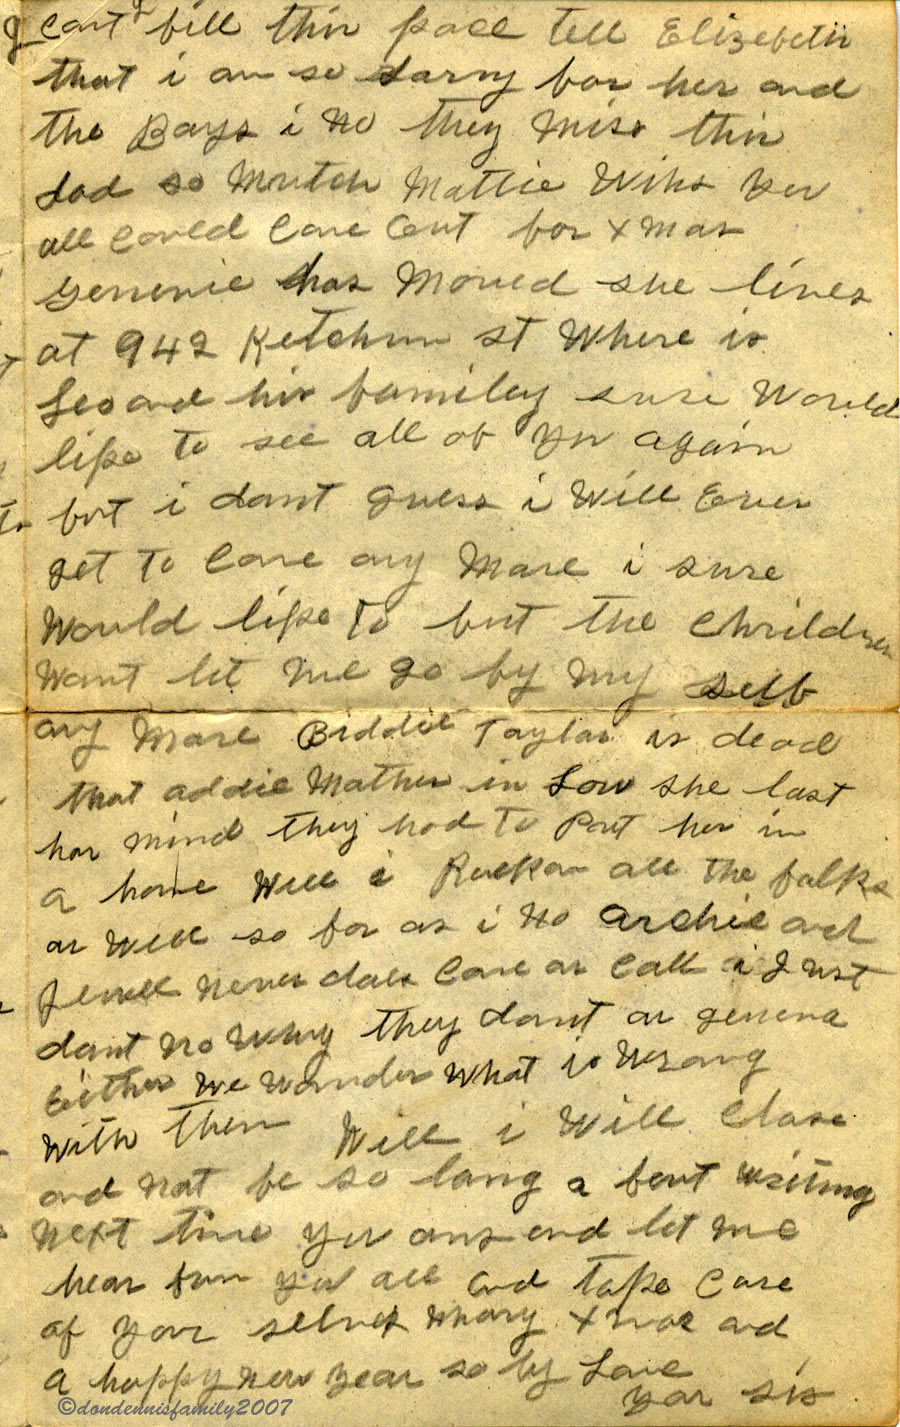 I cant fill thir pace tell Elizebeth
that i am so sarry for her and
the Bays i no they miss thir
dad so mutch Mattie Wihs yu
all Could Come Out for xmas
Genevie has moved she lives
at 942 Ketchum st Where is
Leo and his familey sure Would
like to see all of yu again
but i dant guess i Will Ever
get to Come any mare i sure
Would like to but the Chrildren
Want let me go by my self
any mare Biddie Taylar is dead
that addie Mather in Low she last
har mind they had to Put her in
a home Well i Reckon all the falks
ar Well so far as i no Archie and
Jewell never daes Come ar Call i Just
dant no Why they dant ar geneva
Either We Wander What is Wrang
with them Well i Will Clase
and nat be so lang a bout Writing
next time yu ans and let me
hear frum you all and take Care
of your selves Mary xmas and
a happy new year so by Love
yar sis
©dondennisfamily2007